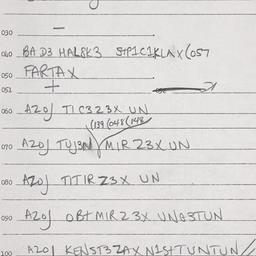 030 —
040 BA D3 HAL8K3 S+P1C1KLAX (057
050 FARTAX
051 +
060 AZOJ TIC3Z3X UN
(139 (048 (148
070 AZOJ TUJ3N MIRZ3X UN
080 AZOJ TITIRZ3X UN
090 AZOJ OB+MIRZ3X UNG3TUN
100 AZOJ KENST3ZAX N1S+TUNTUN